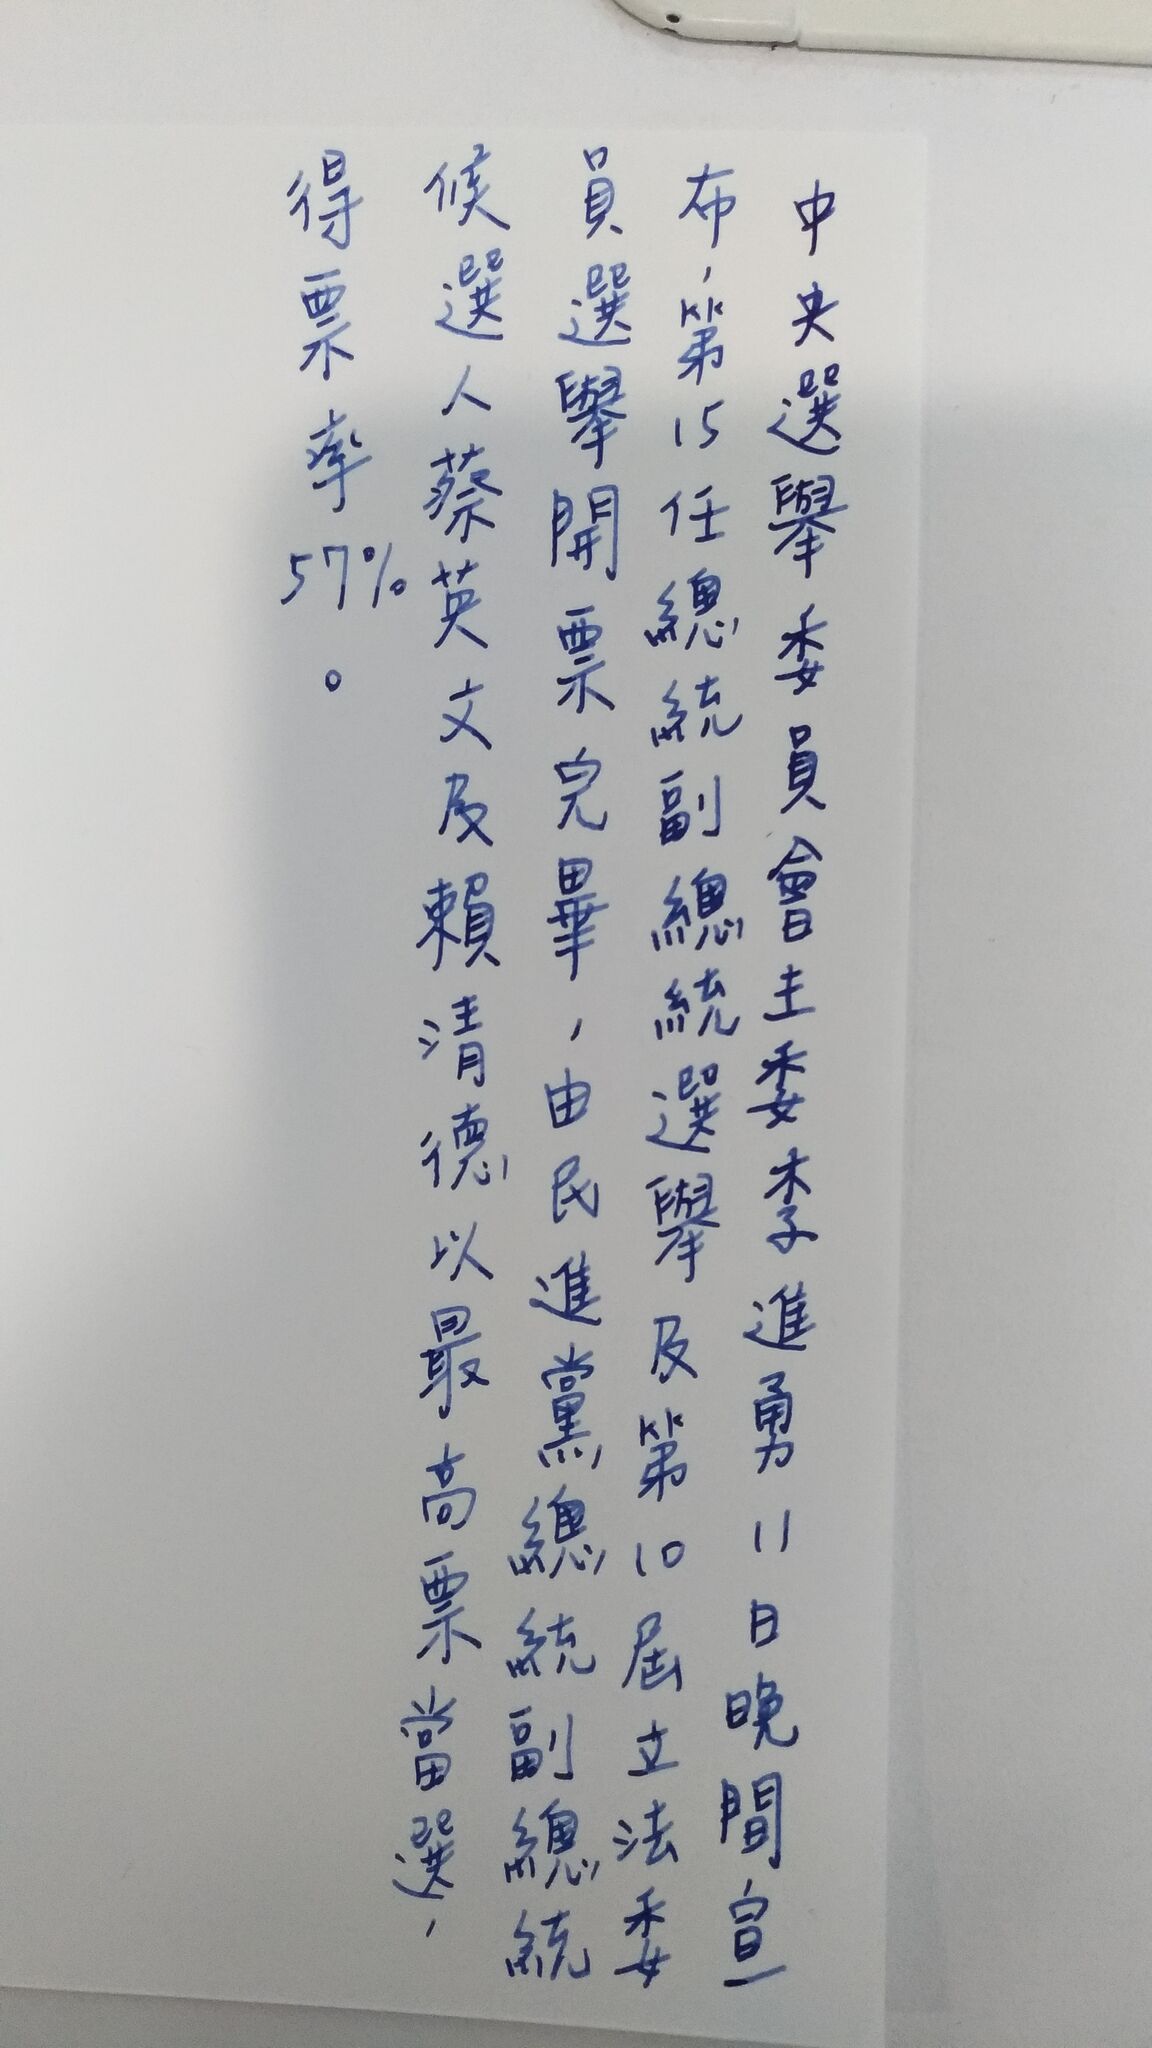 中央選舉委員會主委李進勇11日晚間宣
布,第15任總統副總統選舉及第10屆立法委
員選舉開票完畢,由民進黨總統副總統
候選人蔡英文及賴清德以最高票當選,
得票率57%。